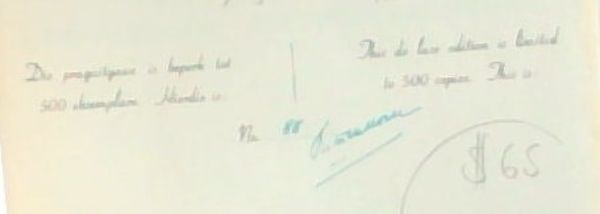 Die praguitgawe is beperk tot
500 eksemplare. Hierdie is:
This de luxe edition is limited
to 500 copies. This is:
No. 88
$65